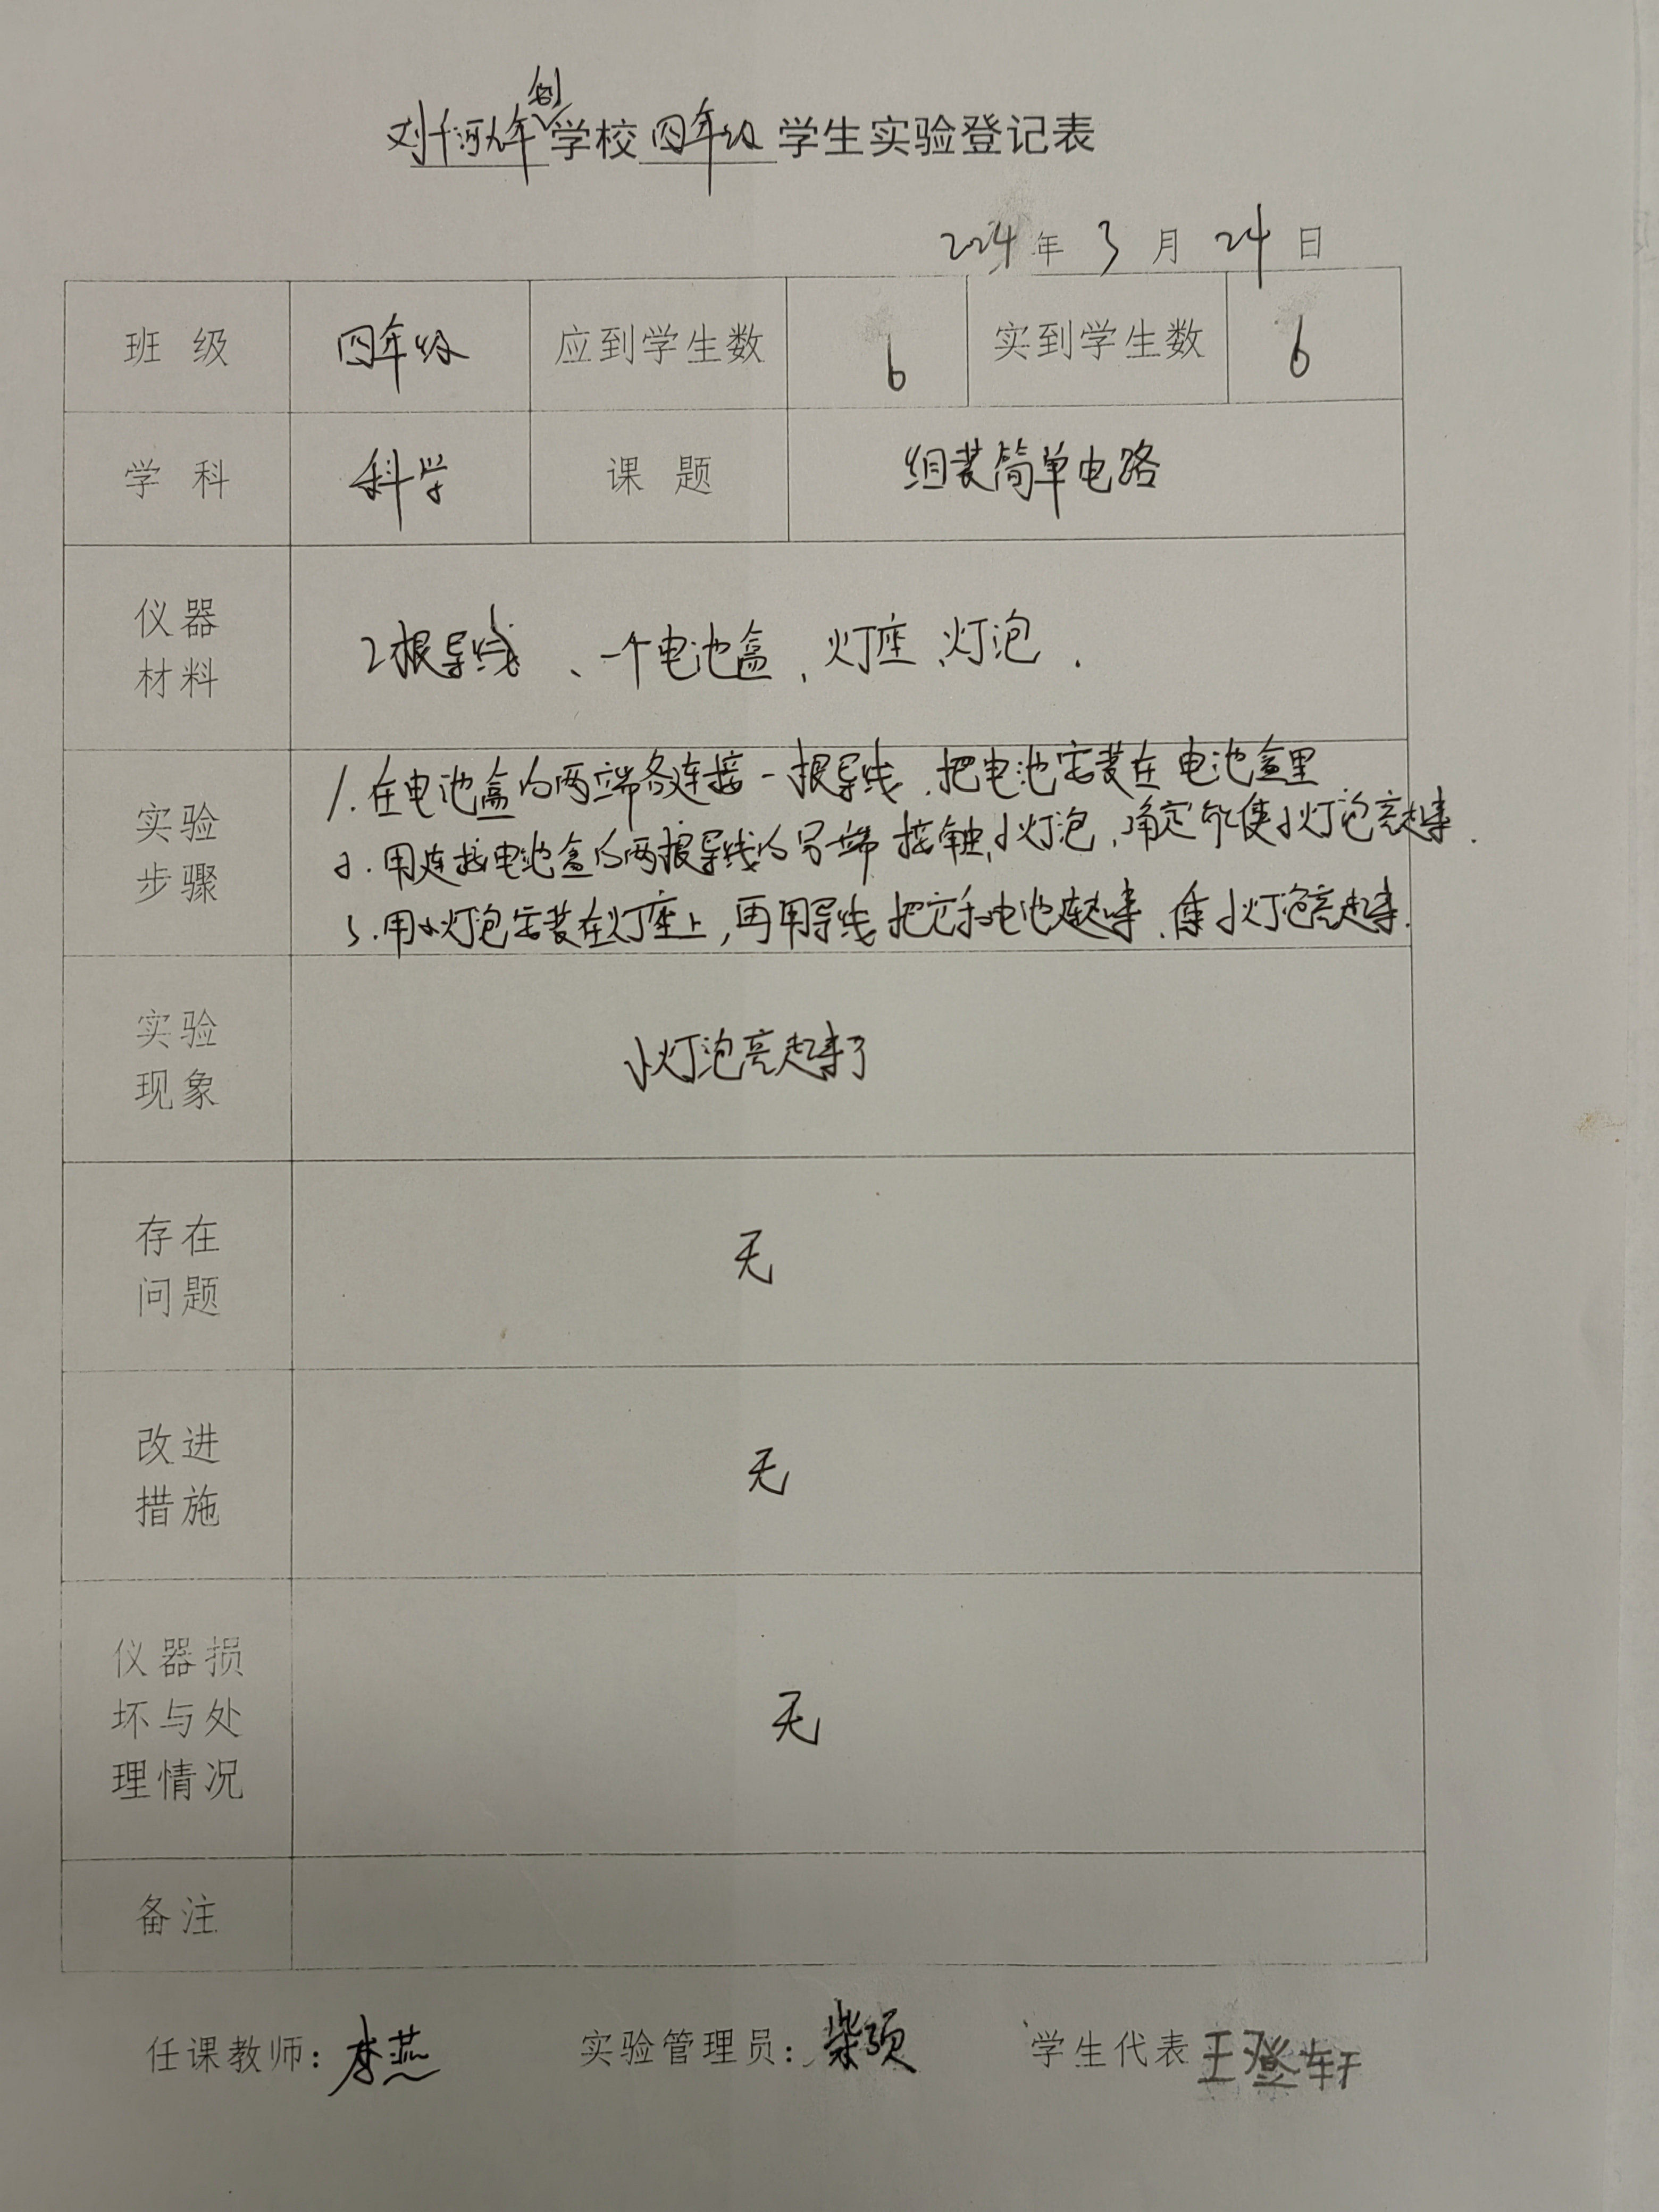 刘千河九年制学校四年级学生实验登记表
2024年3月24日
班 级 四年级 应到学生数 6 实到学生数 6
学 科 科学 课 题 组装简单电路
仪器
材料
2根导线、一个电池盒、灯座、灯泡.
实验
步骤
1.在电池盒的两端各连接一根导线.把电池安装在电池盒里
2.用连接电池盒的两根导线的另一端接触小灯泡,确定能使小灯泡亮起来.
3.用小灯泡安装在灯座上,再用导线把它和电池连起来.使小灯泡亮起来.
实验
现象
小灯泡亮起来了
存在
问题
无
改进
措施
无
仪器损
坏与处
理情况
无
备注
任课教师:李燕 实验管理员: 学生代表王登轩